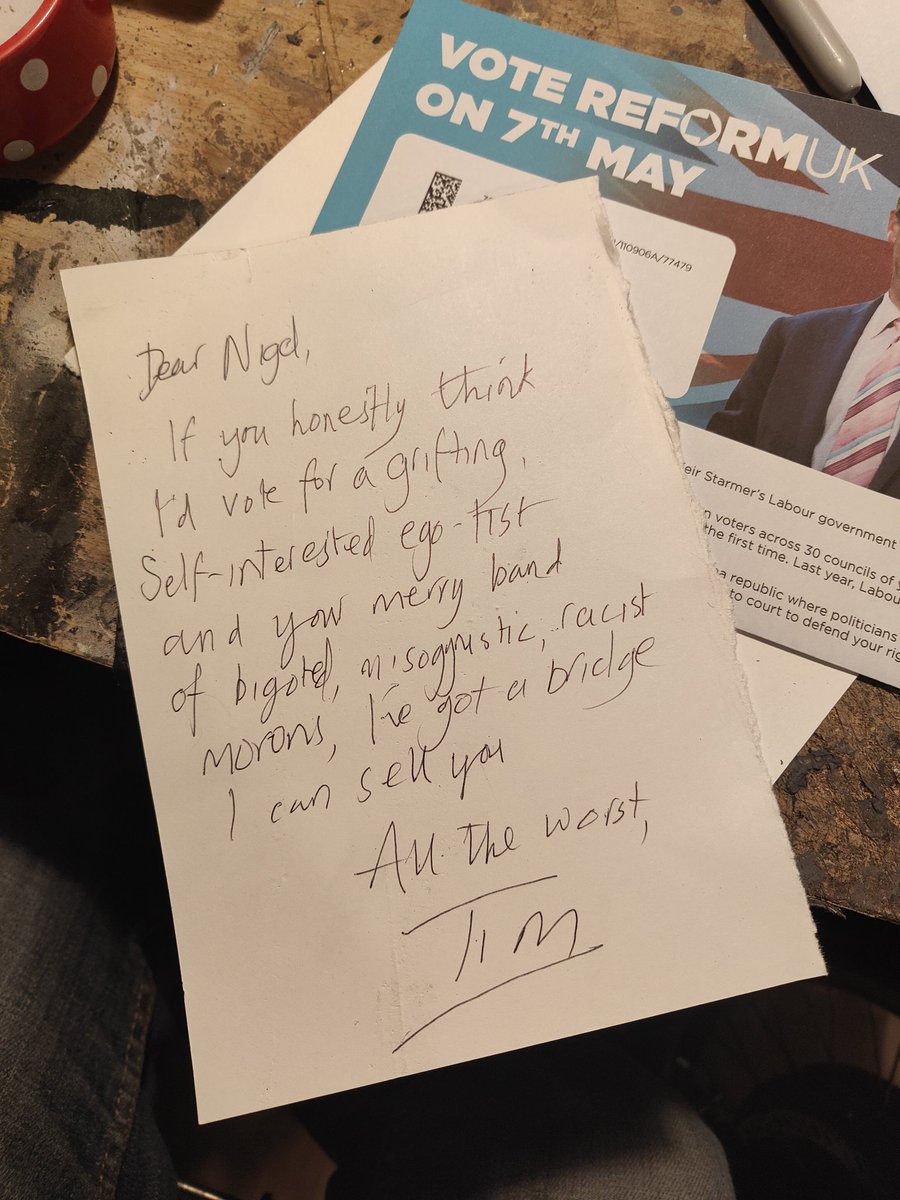 VOTE REFORM UK
ON 7TH MAY
/110906A/77479
Dear Nigel,
If you honestly think
I'd vote for a grifting,
Self-interested ego-tist
and your merry band
of bigoted, misogynistic, racist
morons, I've got a bridge
I can sell you
All the worst,
Tim
eir Starmer's Labour government
n voters across 30 councils of y
the first time. Last year, Labou
a republic where politicians
to court to defend your rig